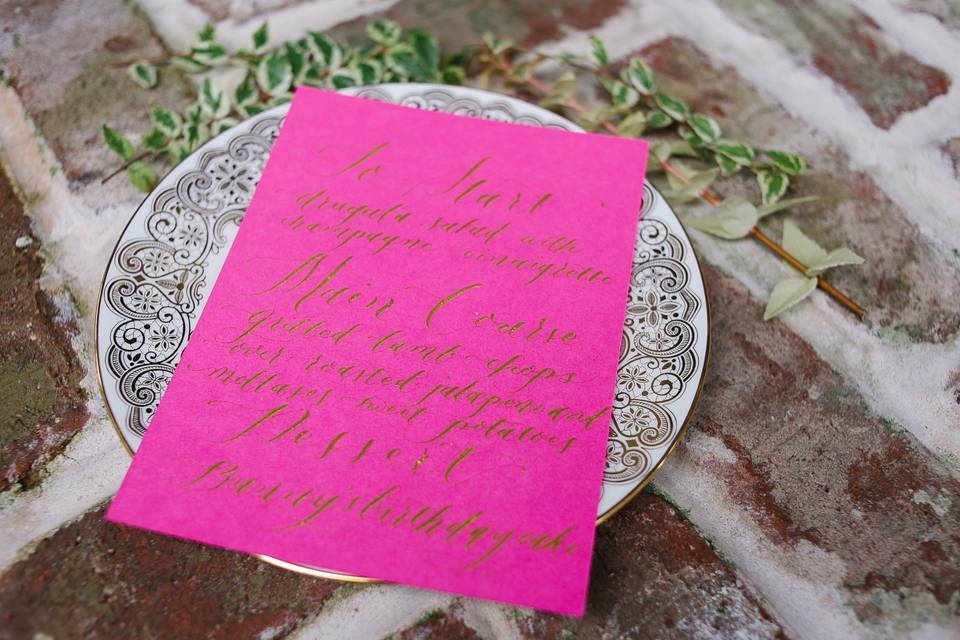 To Start
arugula salad with
champagne vinaigrette
Main Course
grilled lamb chops
over roasted jalapeno and
mollases sweet potatoes
Dessert
Bunny's birthday cake